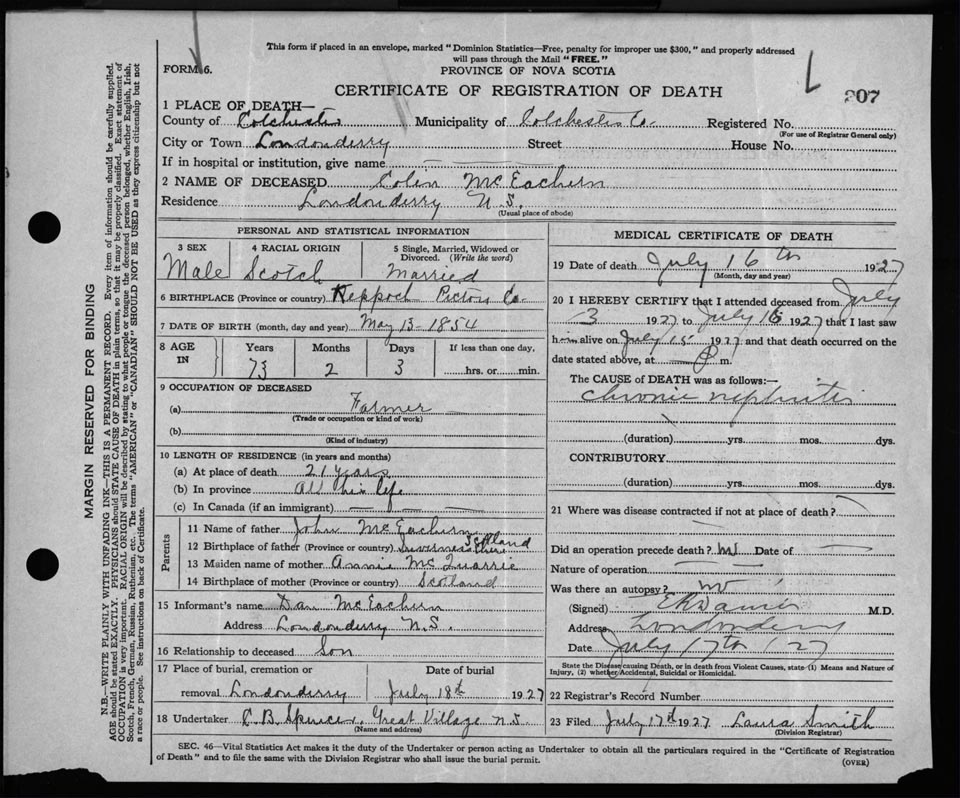 This form if placed in an envelope, marked "Dominion Statistics—Free, penalty for improper use $300," and properly addressed
will pass through the Mail "FREE."
FORM 6.
PROVINCE OF NOVA SCOTIA
CERTIFICATE OF REGISTRATION OF DEATH
207
1 PLACE OF DEATH—
County of Colchester Municipality of Colchester Co. Registered No.
(For use of Registrar General only)
City or Town Londonderry Street House No.
If in hospital or institution, give name —
2 NAME OF DECEASED Colin McEachern
Residence Londonderry N.S.
(Usual place of abode)
PERSONAL AND STATISTICAL INFORMATION
3 SEX 4 RACIAL ORIGIN 5 Single, Married, Widowed or Divorced. (Write the word)
Male Scotch Married
6 BIRTHPLACE (Province or country) Keppoch Pictou Co.
7 DATE OF BIRTH (month, day and year) May 13 - 1854
8 AGE IN Years Months Days If less than one day,
73 2 3 hrs. or min.
9 OCCUPATION OF DECEASED
(a) Farmer
(Trade or occupation or kind of work)
(b)
(Kind of industry)
10 LENGTH OF RESIDENCE (in years and months)
(a) At place of death 21 years
(b) In province All his life
(c) In Canada (if an immigrant) — —
Parents
11 Name of father John McEachern
12 Birthplace of father (Province or country) Invernesshire Scotland
13 Maiden name of mother Annie McQuarrie
14 Birthplace of mother (Province or country) Scotland
15 Informant's name Dan McEachern
Address Londonderry N.S.
16 Relationship to deceased Son
17 Place of burial, cremation or removal Londonderry
Date of burial July 18th 1927
18 Undertaker C. B. Spencer, Great Village N.S.
(Name and address)
MEDICAL CERTIFICATE OF DEATH
19 Date of death July 16th 1927
(Month, day and year)
20 I HEREBY CERTIFY that I attended deceased from July
3 1927 to July 16 1927 that I last saw
him alive on July 15 1927 and that death occurred on the
date stated above, at P m.
The CAUSE of DEATH was as follows:—
chronic nephritis
(duration) yrs. mos. dys.
CONTRIBUTORY
(duration) yrs. mos. dys.
21 Where was disease contracted if not at place of death? —
Did an operation precede death? no Date of —
Nature of operation — —
Was there an autopsy? no
(Signed) M.D.
Address Londonderry
Date July 17th 1927
State the Disease causing Death, or in death from Violent Causes, state (1) Means and Nature of
Injury, (2) whether Accidental, Suicidal or Homicidal.
22 Registrar's Record Number
23 Filed July 17th 1927 Laura Smith
(Division Registrar)
SEC. 46—Vital Statistics Act makes it the duty of the Undertaker or person acting as Undertaker to obtain all the particulars required in the "Certificate of Registration
of Death" and to file the same with the Division Registrar who shall issue the burial permit.
(OVER)
MARGIN RESERVED FOR BINDING
N.B.—WRITE PLAINLY WITH UNFADING INK—THIS IS A PERMANENT RECORD. Every item of information should be carefully supplied.
AGE should be stated EXACTLY. PHYSICIANS should STATE CAUSE OF DEATH in plain terms, so that it may be properly classified. Exact statement of
OCCUPATION is very important. RACIAL ORIGIN will be described by stating to what people or tongue the deceased person belonged, whether English, Irish,
Scotch, French, German, Russian, Ruthenian, etc. The terms "AMERICAN" or "CANADIAN" SHOULD NOT BE USED as they express citizenship but not
a race or people. See instructions on back of Certificate.